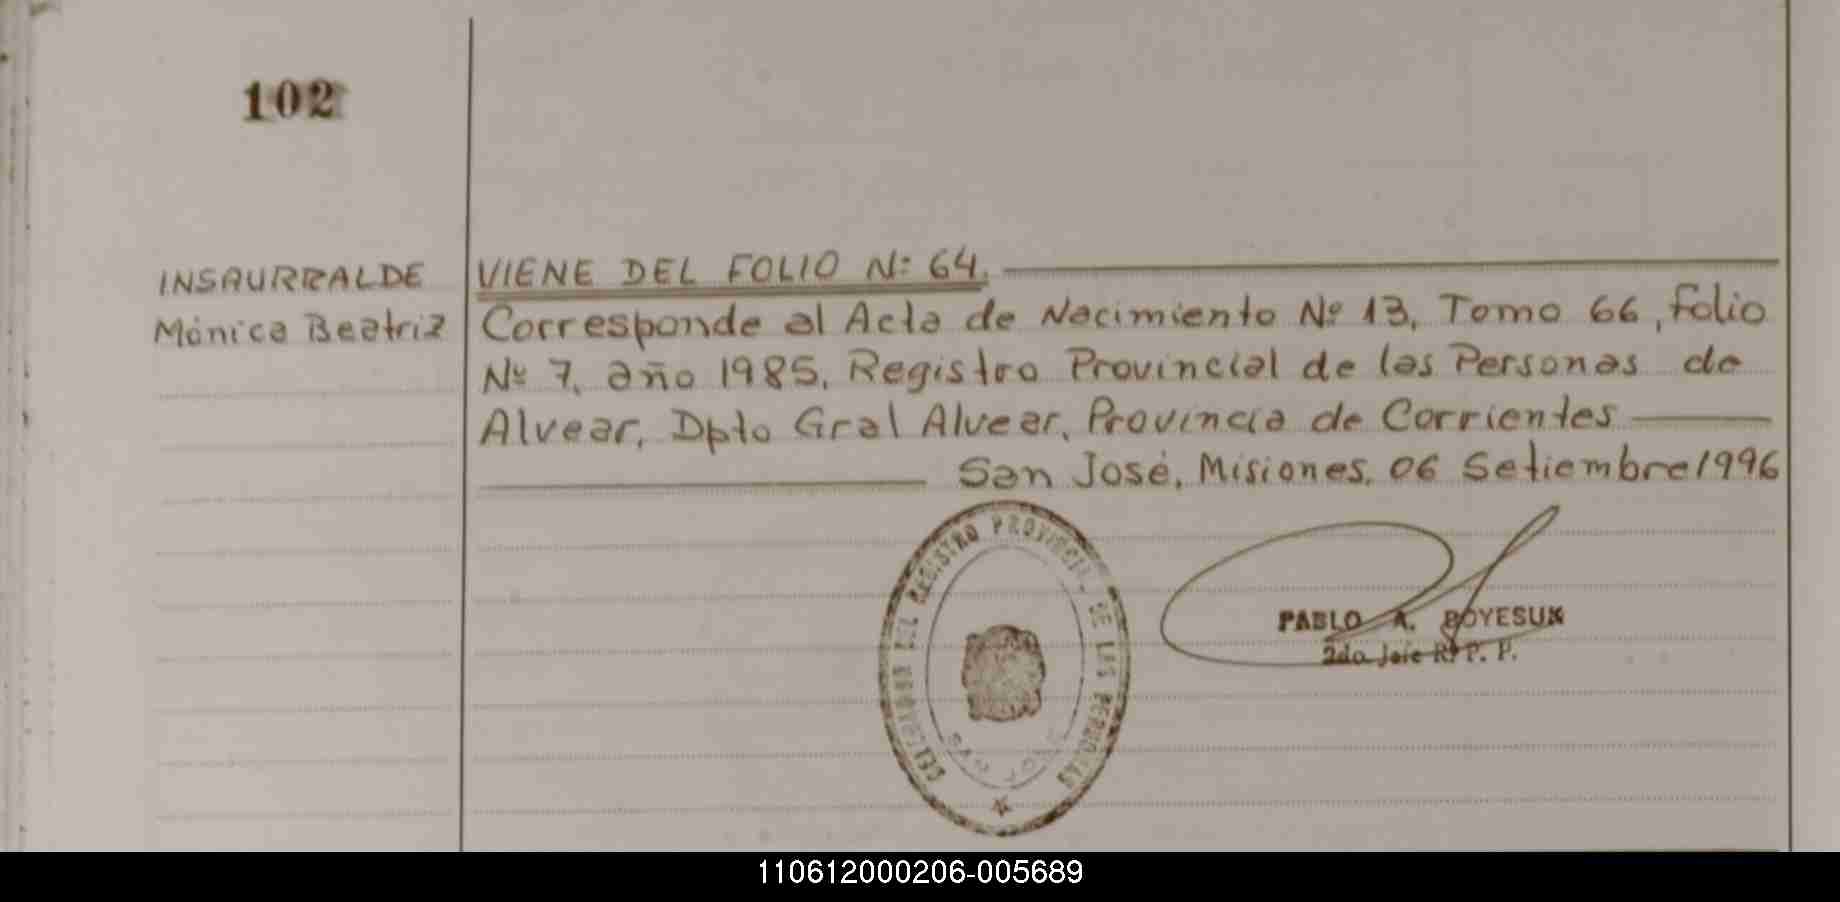 102
INSAURRALDE
Mónica Beatriz
VIENE DEL FOLIO Nº 64.
Corresponde al Acta de Nacimiento Nº 13, Tomo 66, folio
Nº 7, año 1985, Registro Provincial de las Personas de
Alvear, Dpto Gral Alvear, Provincia de Corrientes
San José, Misiones, 06 Setiembre 1996
DELEGACION DEL REGISTRO PROVINCIAL DE LAS PERSONAS
SAN JOSE
PABLO A. BOYESUK
2do Jefe R. P. P.
110612000206-005689